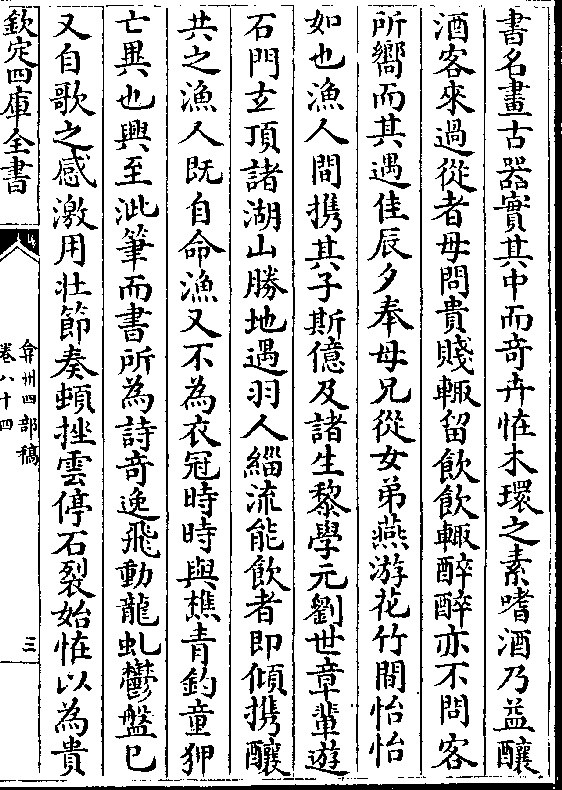 書名畫古器實其中而奇卉怪木環之素嗜酒乃益釀
酒客來過從者毋問貴賤輙留飲飲輙醉醉亦不問客
所嚮而其遇佳辰夕奉母兄從女弟燕游花竹間怡怡
如也漁人間攜其子斯億及諸生黎學元劉世章輩遊
石門玄頂諸湖山勝地遇羽人緇流能飲者即傾攜釀
共之漁人既自命漁又不為衣冠時時與樵青釣童狎
亡異也興至泚筆而書所為詩奇逸飛動龍虬鬱盤已
又自歌之感激用壯節奏頓挫雲停石裂始怪以為貴
欽定四庫全書
弇州四部稿
卷八十四
三